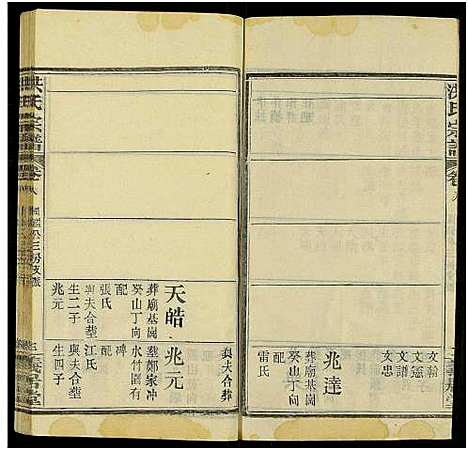 洪氏宗譜
卷八
文翰
文憲
文譜
文
兆達
葬廟基崗
癸山丁向
配
雷氏
與夫合葬
兆元
葬鄭家冲
水竹園有
碑
配
江氏
生四子
天皓
葬廟基崗
癸山丁向
配
張氏
與夫合葬
生二子
兆元
洪氏宗譜
卷八